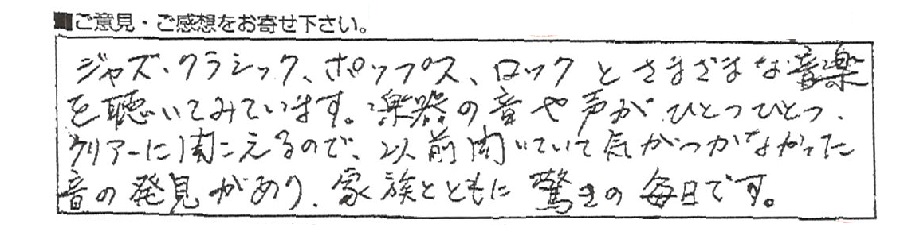 ■ご意見・ご感想をお寄せ下さい。
ジャズ・クラシック、ポップス、ロックとさまざまな音楽
を聴いてみています。楽器の音や声がひとつひとつ、
クリアーに聞こえるので、以前聞いていて気がつかなかった
音の発見があり、家族とともに驚きの毎日です。